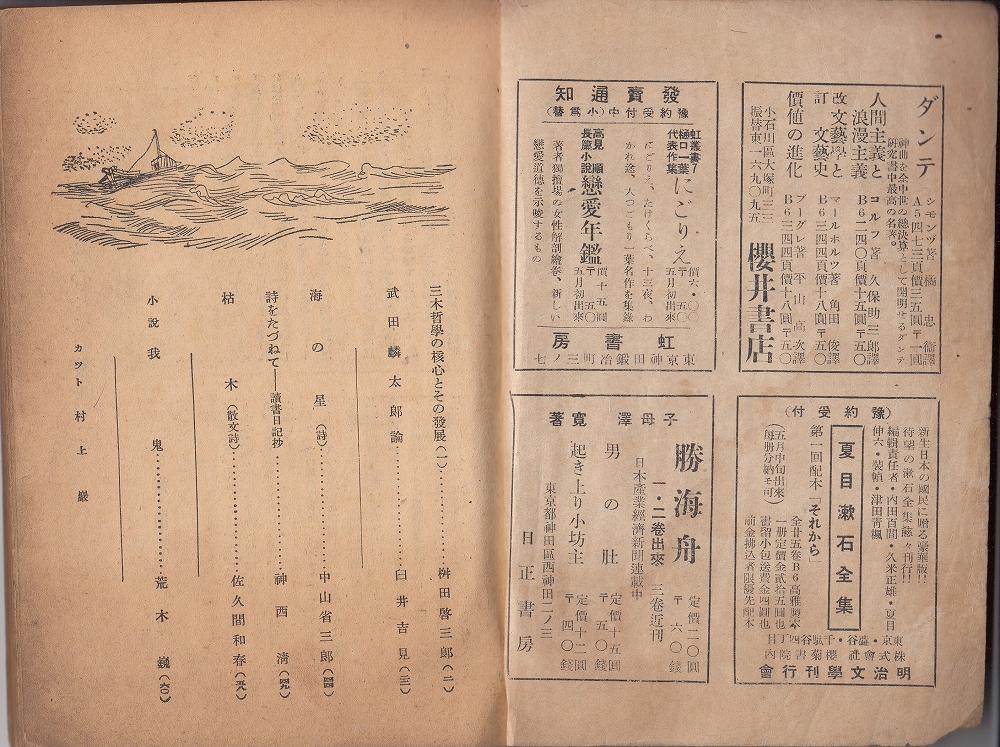 ダンテ
シモンヅ著 橘忠衞譯
A5四七三頁價三五圓〒一圓
神曲を全中世の總決算として闡明せるダンテ
研究書中最高の名著。
人間主義と
浪漫主義
コルフ著 久保助三郎譯
B6二四〇頁價十五圓〒五〇
改訂 文藝學と
文藝史
マールホルツ著 角田俊譯
B6三四四頁價十八圓〒五〇
價値の進化
ブーグレ著 平山高次譯
B6三四四頁價十八圓〒五〇
小石川區大塚町三三
振替東一六九〇九五
櫻井書店
發賣通知
豫約受付中(小爲替)
虹叢書7
樋口一葉
代表作集
にごりえ
價六・〇〇
〒 五〇
五月初出來
にごりえ、たけくらべ、十三夜、わ
かれ途、大つごもり一葉名作を集錄
高見順
長篇小說
戀愛年鑑
價十五圓
〒 五〇
五月初出來
著者獨擅場の女性解剖繪卷、新しい
戀愛道德を示唆するもの
虹書房
東京神田鍛冶町三ノ七
(豫約受付)
新生日本の國民に贈る豪華版!!
待望の漱石全集謹々刊行!!
編輯責任者・內田百間・久米正雄・夏目
伸六・裝幀・津田靑楓
夏目漱石全集
第一回配本「それから」
(五月中旬出來)
(每册分納モ可)
全廿五卷B6高雅製本
一册定價金貳拾五圓也
書留小包送費金四圓也
前金拂込者限優先配本
東京・澁谷・千駄谷四丁目
株式會社櫻菊書院內
明治文學刊行會
子母澤寬著
勝海舟
一・二卷出來 三卷近刊
定價二〇圓
〒 六〇錢
日本產業經濟新聞連載中
男の肚
定價十五圓
〒 五〇錢
起き上り小坊主
定價十二圓
〒 四〇錢
東京都神田區西神田二ノ三
日正書房
三木哲學の核心とその發展(一)……桝田啓三郎(二)
武田麟太郞論……臼井吉見(三)
海の星(詩)……中山省三郎(四四)
詩をたづねて——讀書日記抄……神西淸(四九)
枯木(散文詩)……佐久間和春(五九)
小說 我鬼……荒木巍(六〇)
カツト 村上巖